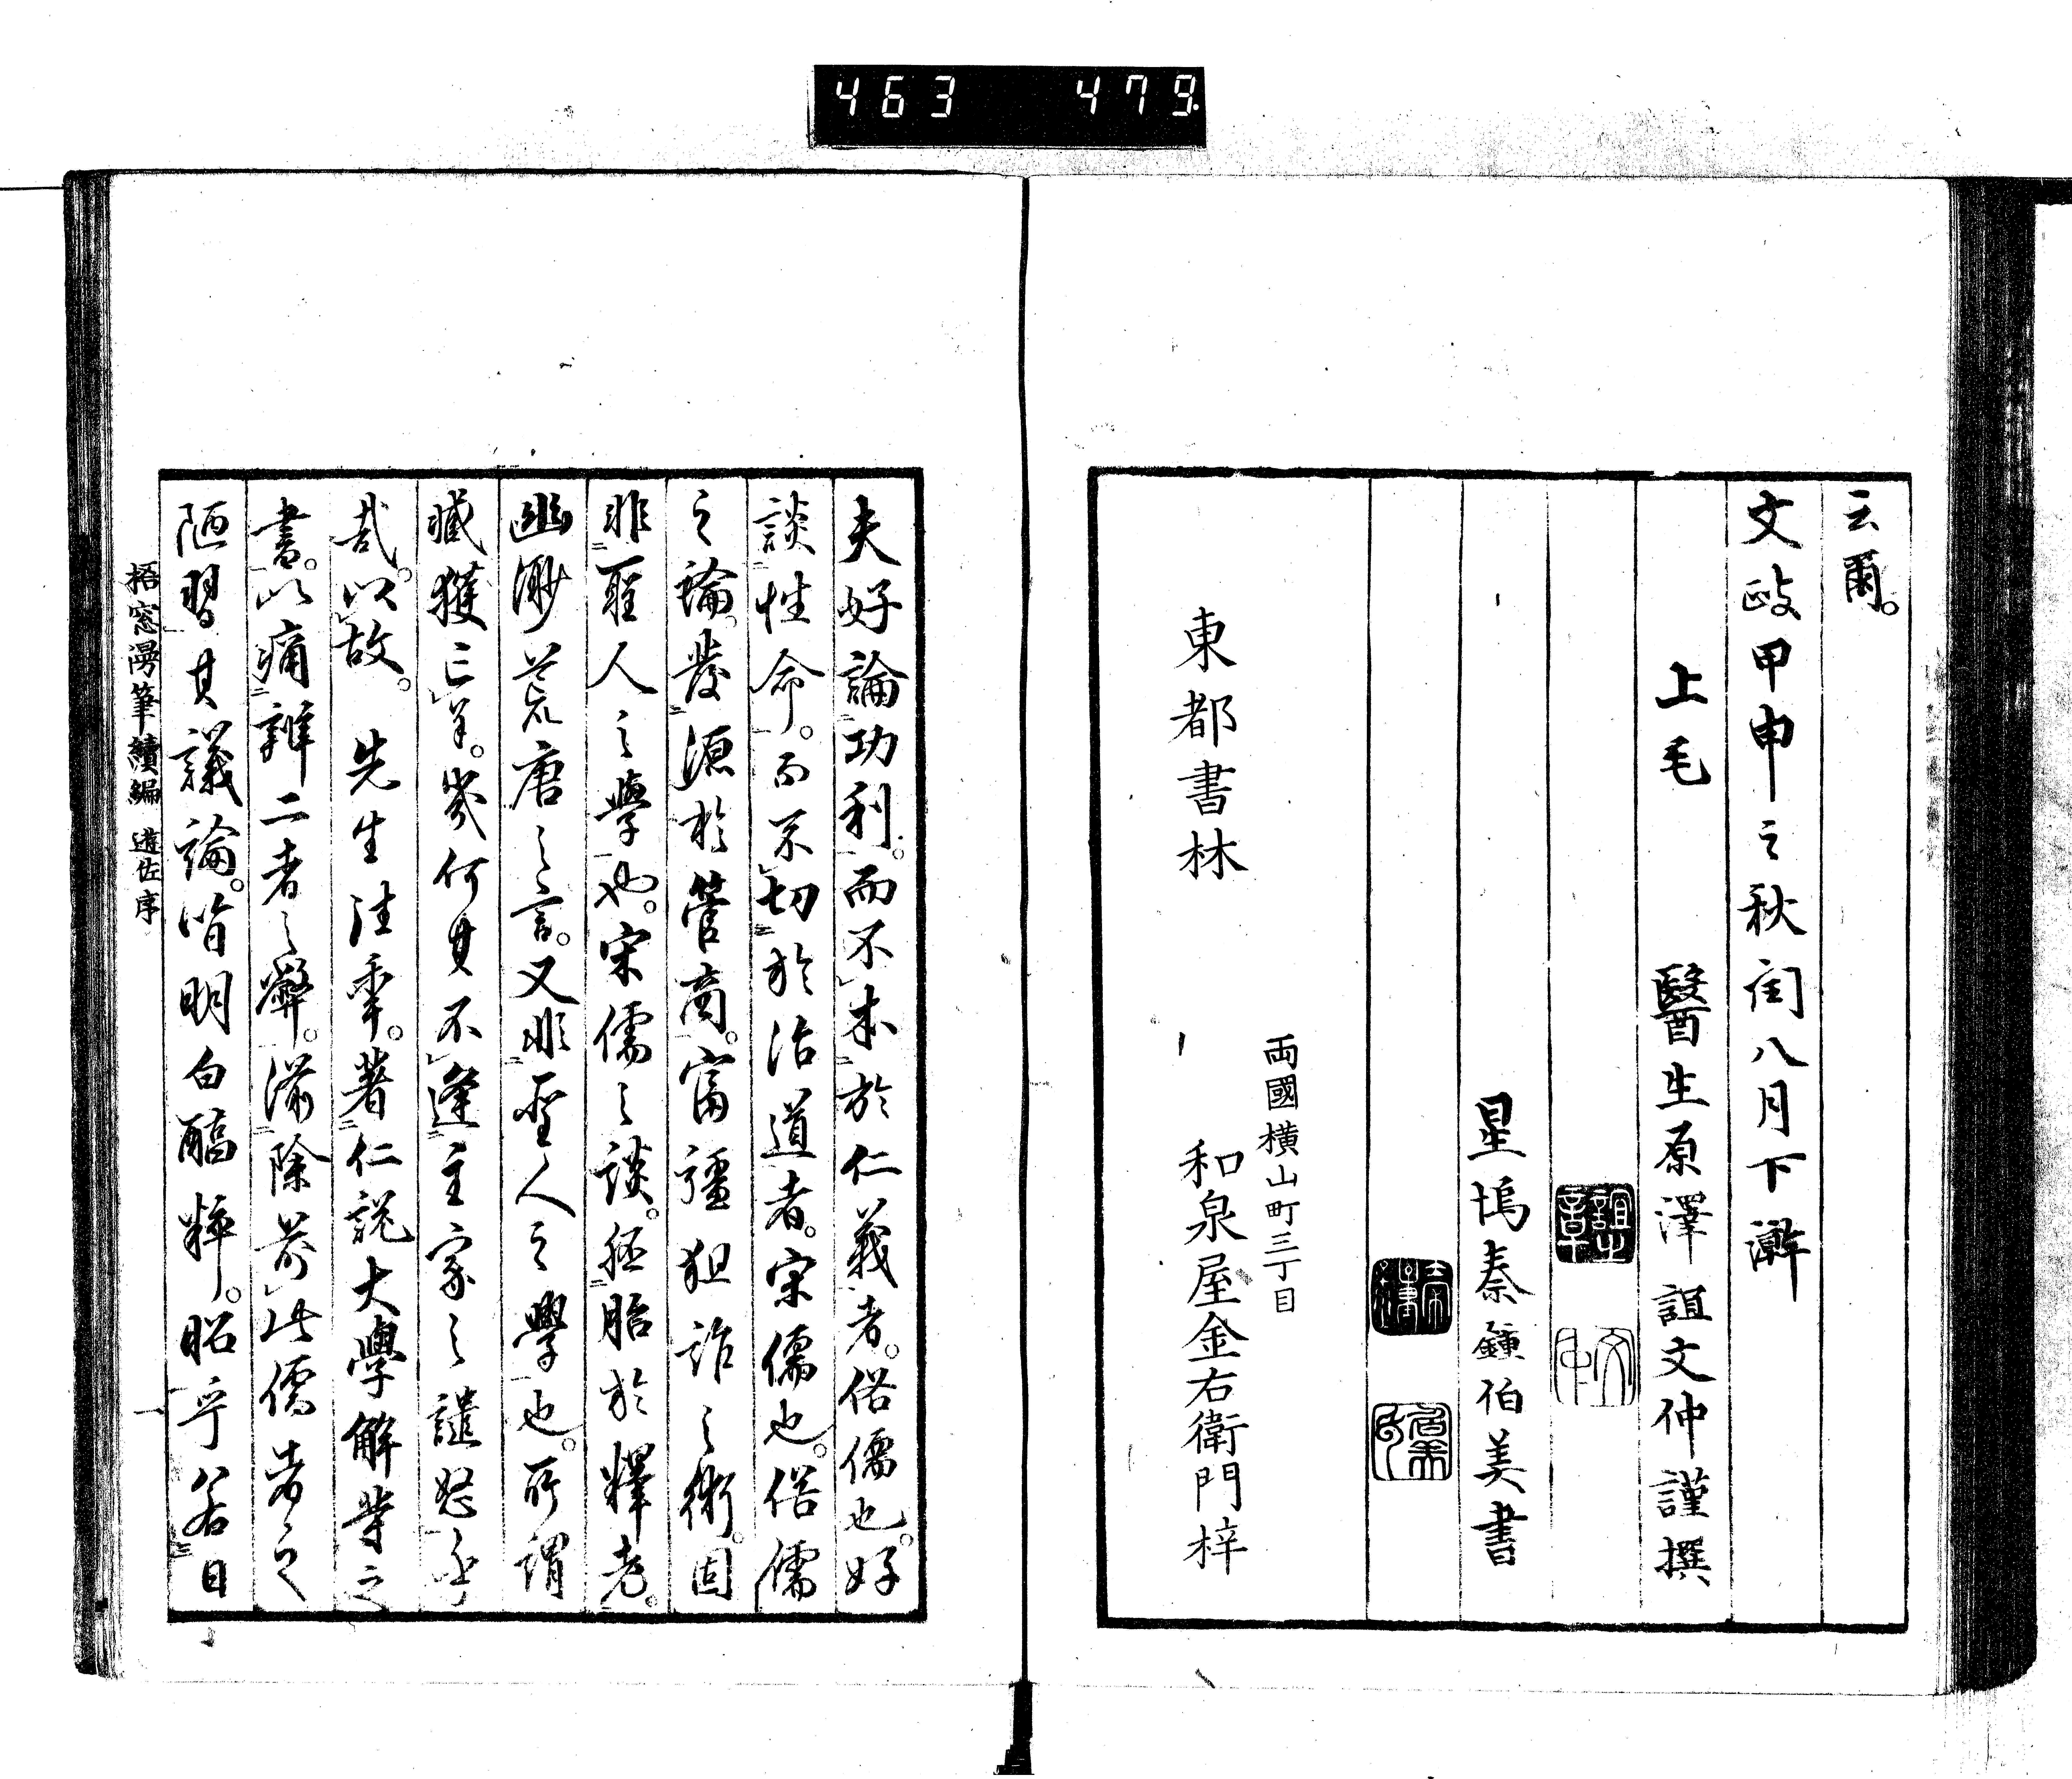 463 479
云爾。
文政甲申之秋閏八月下澣
上毛 醫生原澤誼文仲謹撰
星塢秦鍾伯美書
兩國橫山町三丁目
東都書林 和泉屋金右衛門梓
夫好論功利。而不本於仁義者。俗儒也。好
談性命。而不切於治道者。宋儒也。俗儒
之論。發源於管商。富彊狙詐之術。固
非聖人之學也。宋儒之談。胚胎於釋老。
幽渺荒唐之言。又非聖人之學也。所謂
臧獲亡羊。幾何其不逢主家之譴怒乎
哉。以故。先生注乗。著仁說大學解等之
書。以痛辨二者之弊。滌除前此儒者之
陋習。其議論。皆明白醇粹。昭乎若日
梧窓漫筆續編 遊佐序 一